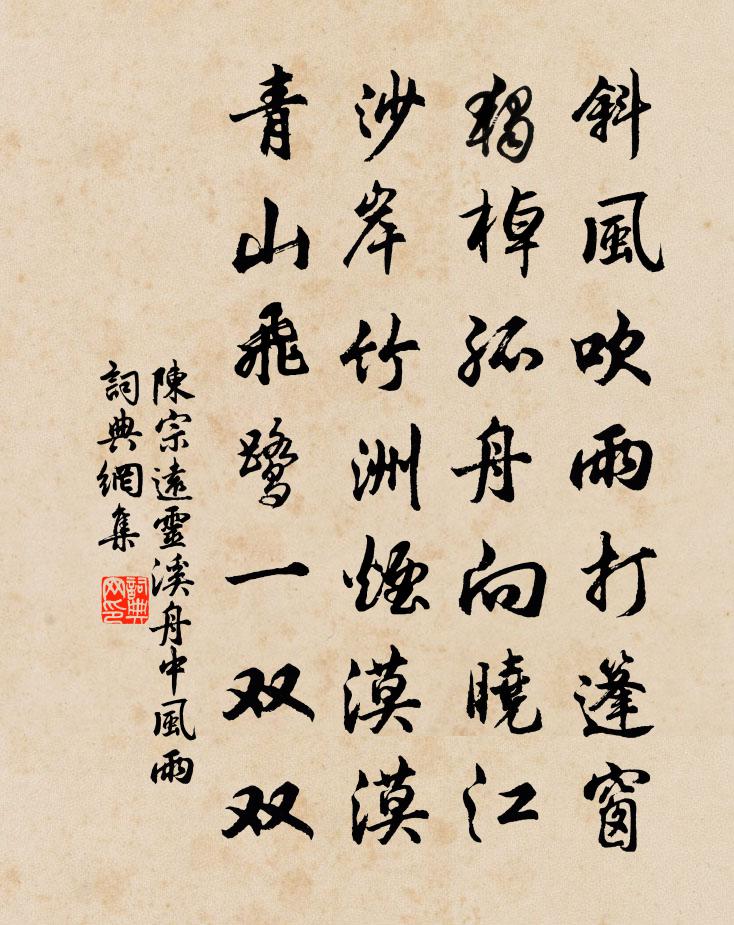 斜風吹雨打篷窗
獨棹孤舟向曉江
沙岸竹洲煙漠漠
青山飛鹭一双双
陳宗遠靈溪舟中風雨
詞典網集